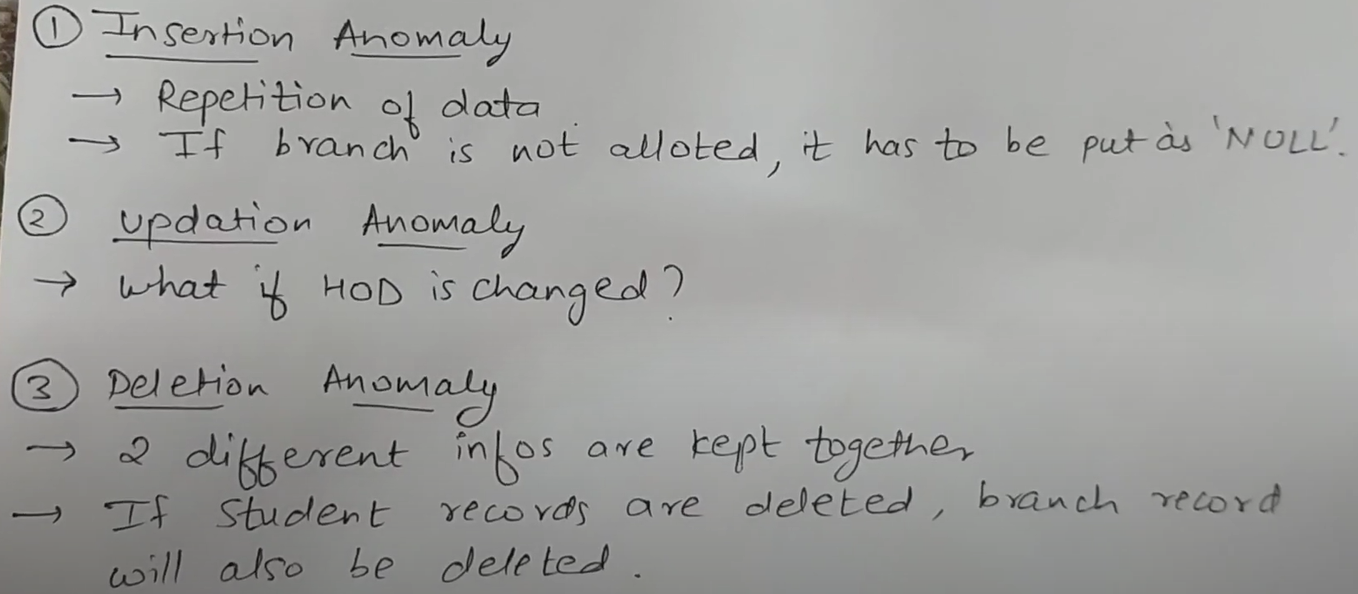 ① Insertion Anomaly
→ Repetition of data
→ If branch is not alloted, it has to be put as 'NULL'.
② Updation Anomaly
→ What if HOD is changed?
③ Deletion Anomaly
→ 2 different infos are kept together
→ If student records are deleted, branch record
will also be deleted.